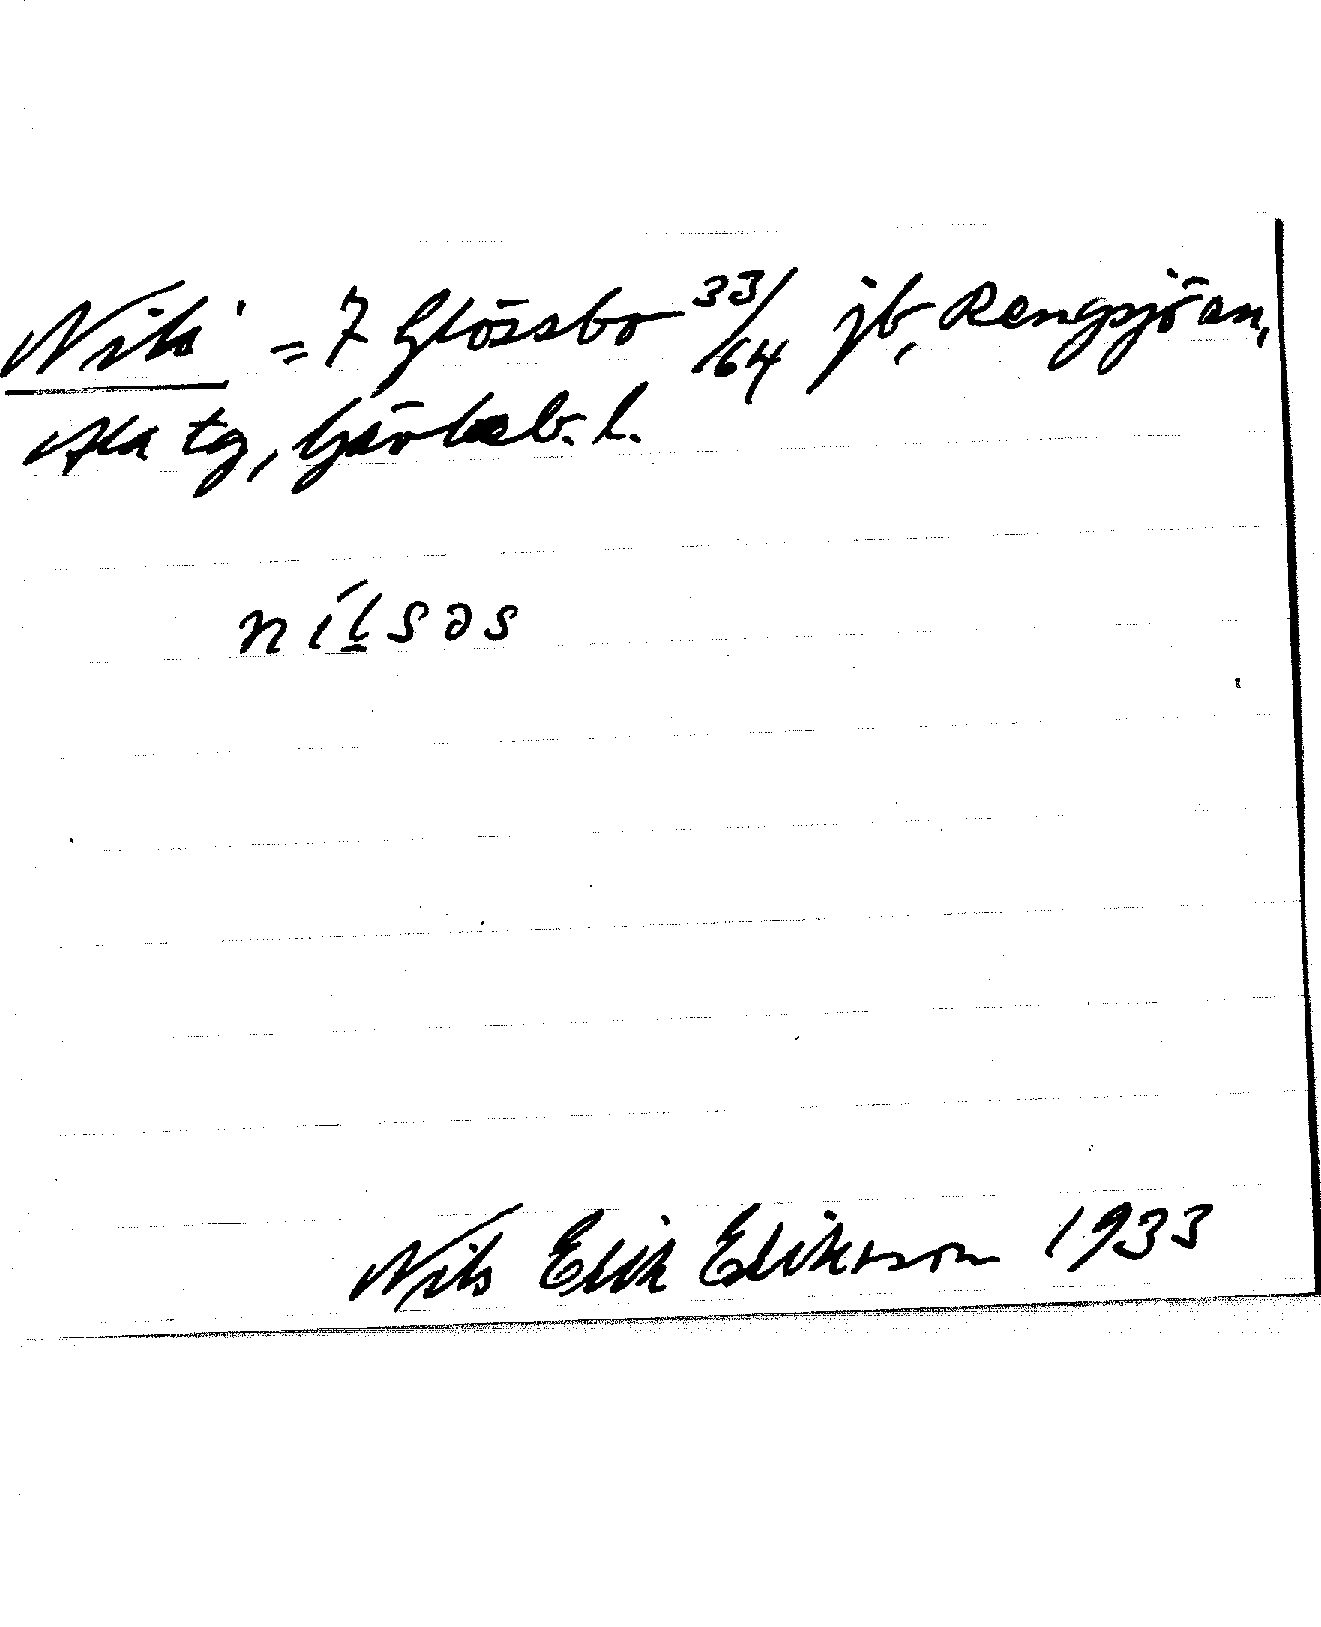 Nils' = 7 Glössbo 33/64 jb, Rengsjö sn,
Ala tg, Gävleb. l.
nílsəs
Nils Erik Eriksson 1933